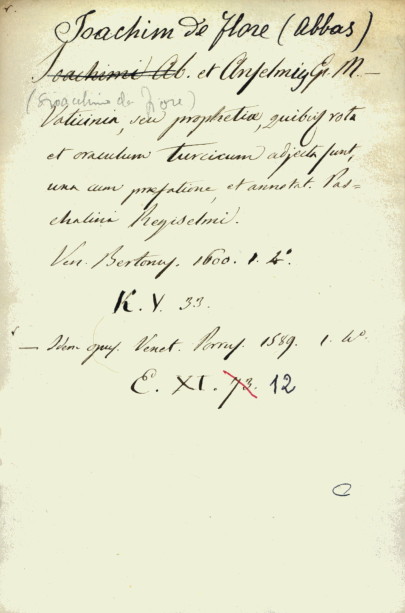 Joachim de Flore (Abbas)
Joachimi Ab. et Anselmi, Ep. M.—
(Gioacchino da Fiore)
Vaticinia, seu prophetiæ, quibus rota
et oraculum turcicum adjecta sunt,
una cum præfatione, et annotat. Pas=
chalini Regiselmi.
Ven. Bertonus. 1600. 1. 4°.
K. V. 33.
— Idem opus. Venet. Porrus. 1589. 1. 4°.
E. XI. 73. 12